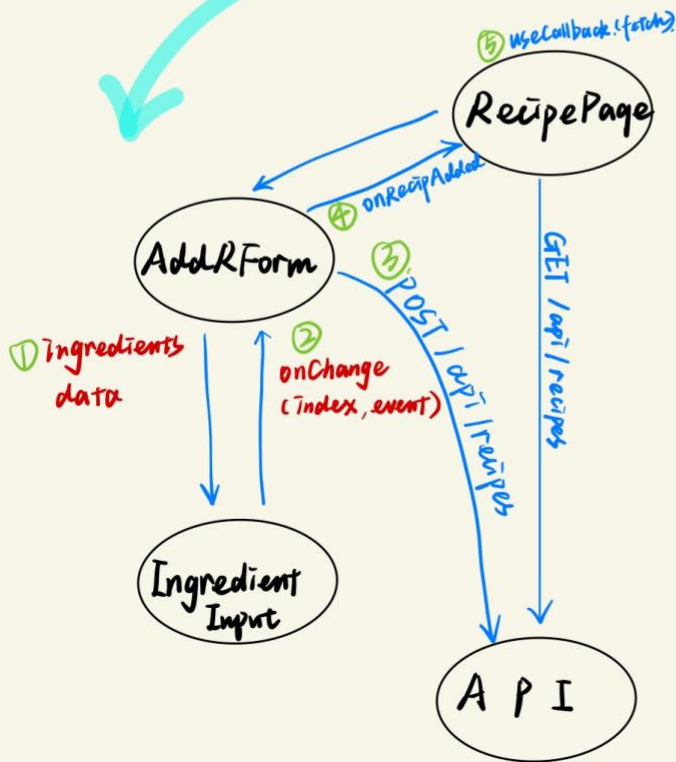 ⑤ useCallback(fetch)
RecipePage
④ onRecipAdded
AddRForm
③ POST /api/recipes
GET /api/recipes
① ingredients
data
②
onChange
(index, event)
Ingredient
Input
API